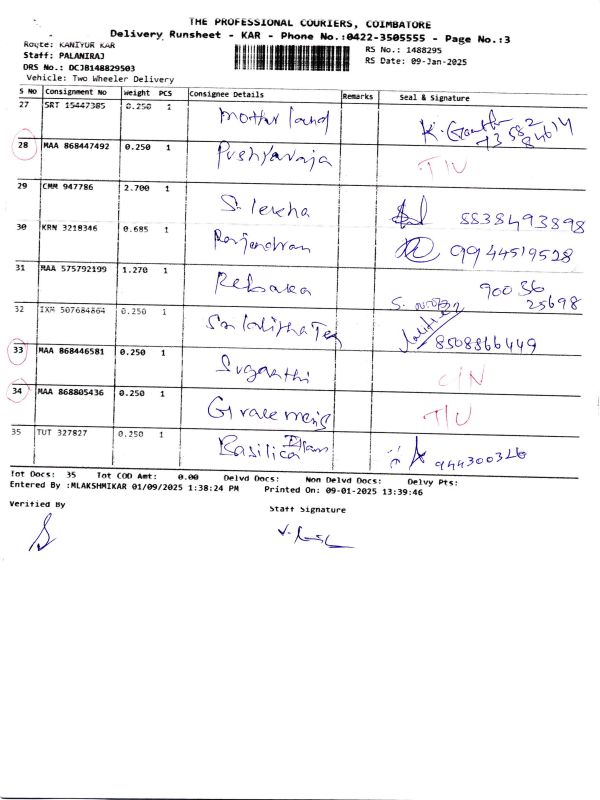 THE PROFESSIONAL COURIERS, COIMBATORE
Delivery Runsheet - KAR - Phone No.:0422-3505555 - Page No.:3
Route: KANIYUR KAR
RS No.: 1488295
Staff: PALANIRAJ
RS Date: 09-Jan-2025
DRS No.: DCJB148829503
Vehicle: Two Wheeler Delivery
S No Consignment No Weight PCS Consignee Details Remarks Seal & Signature
27 SRT 15447385 0.250 1 motherland 73582 84614
28 MAA 868447492 0.250 1 Pushyaraja T/U
29 CMM 947786 2.700 1 S. lekha 5538493898
30 KRN 3218346 0.685 1 Rajendran 9944519528
31 MAA 575792199 1.270 1 Rebaka 90036 25698
32 IXM 507684864 0.250 1 Sri lalitha Tex 8508866449
33 MAA 868446581 0.250 1 Suganthi C/N
34 MAA 868805436 0.250 1 T/U
35 TUT 327827 0.250 1 Basilica 944300326
Tot Docs: 35 Tot COD Amt: 0.00 Delvd Docs: Non Delvd Docs: Delvy Pts:
Entered By :MLAKSHMIKAR 01/09/2025 1:38:24 PM Printed On: 09-01-2025 13:39:46
Verified By
Staff Signature